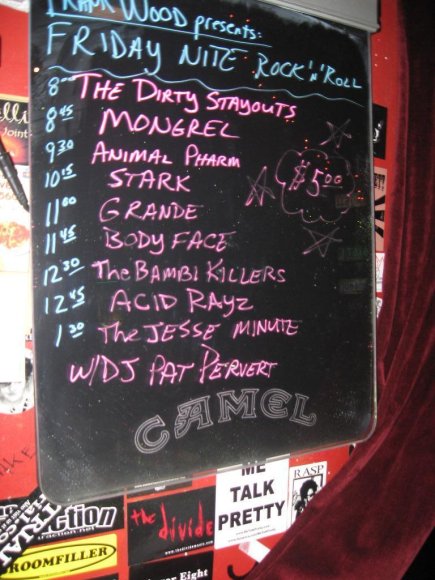 FRANK WOOD presents:
FRIDAY NITE ROCK 'n' ROLL
8 00 THE DIRTY STAYOUTS
8 45 MONGREL
9 30 ANIMAL PHARM
10 15 STARK
$5.00
11 00 GRANDE
11 45 BODY FACE
12 30 The BAMBI KILLERS
12 45 ACID RAYZ
1 30 The JESSE MINUTE
W/DJ PAT PERVERT
CAMEL
ME
TALK
PRETTY
RASP
the divide
ROOMFILLER